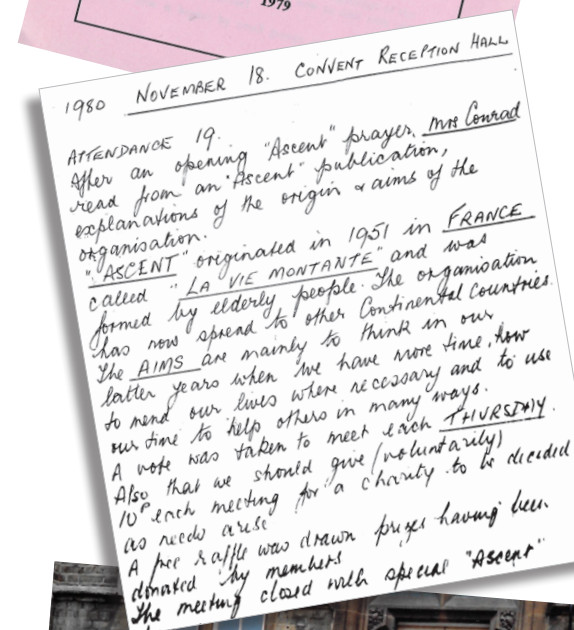 1979
1980 NOVEMBER 18. CONVENT RECEPTION HALL
ATTENDANCE 19.
After an opening "Ascent" prayer, Mrs Conrad
read from an "Ascent" publication,
explanations of the origin & aims of the
organisation.
"ASCENT" originated in 1951 in FRANCE
called "LA VIE MONTANTE" and was
formed by elderly people. The organisation
has now spread to other Continental Countries.
The AIMS are mainly to think in our
latter years when we have more time, how
to mend our lives where necessary and to use
our time to help others in many ways.
A vote was taken to meet each THURSDAY.
Also that we should give (voluntarily)
10p each meeting for a charity to be decided
as needs arise
A free raffle was drawn prizes having been
donated by members
The meeting closed with special "Ascent"